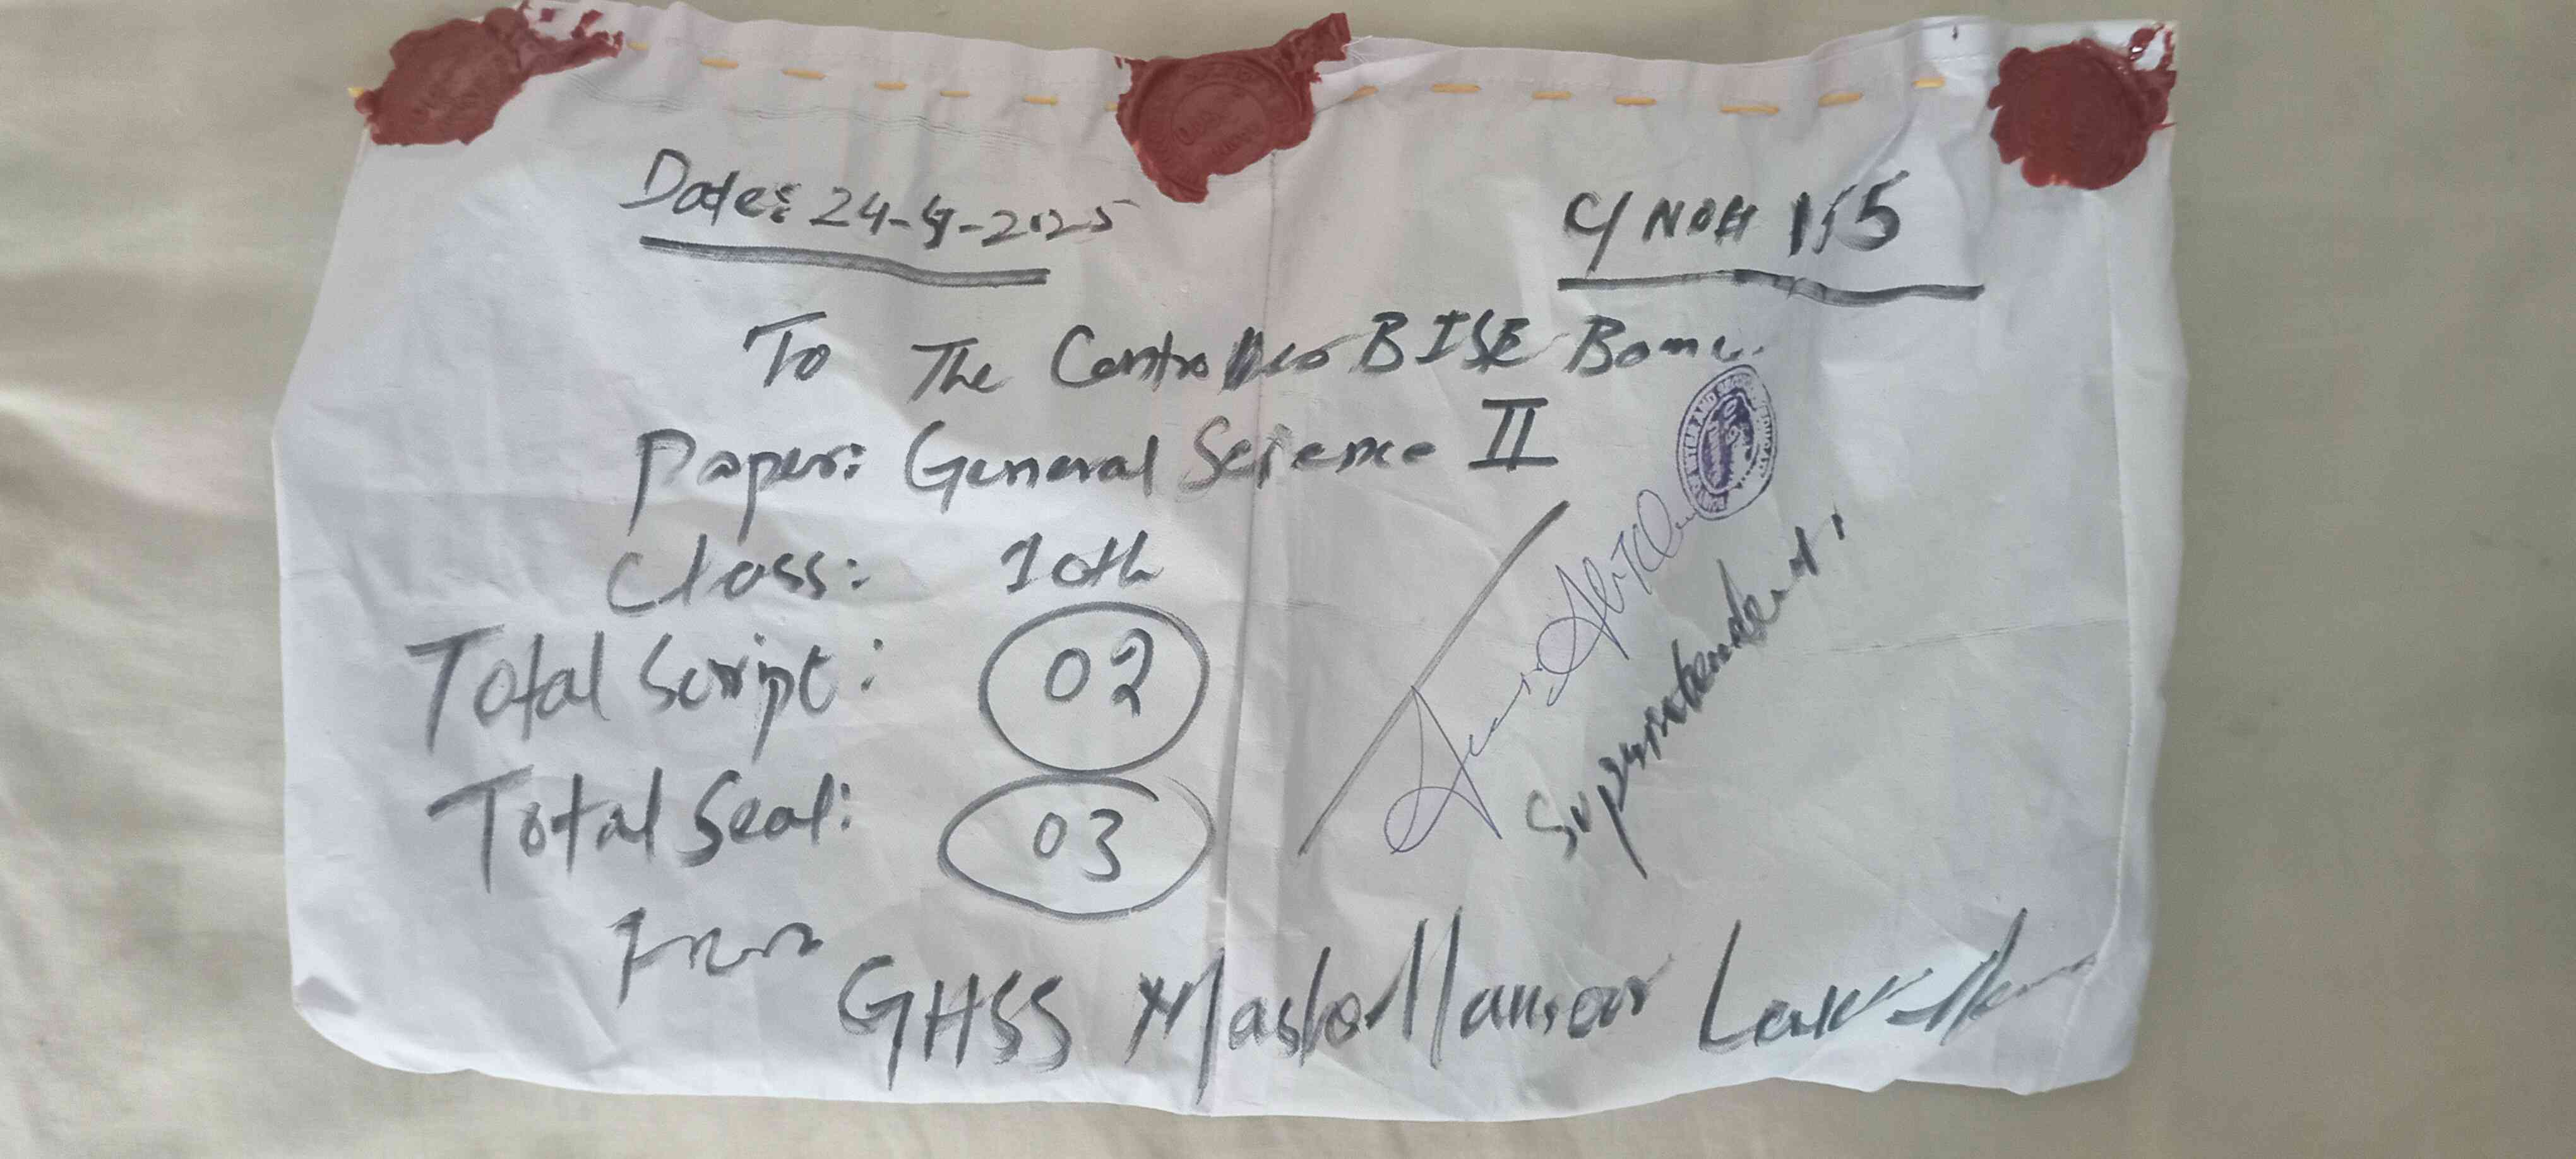 Date: 24-4-2025
C/NO# 155
To The Controller BISE Bannu.
Paper: General Science II
Class: 10th
Total Script: 02
Total Seal: 03
Superintendent
From
GHSS